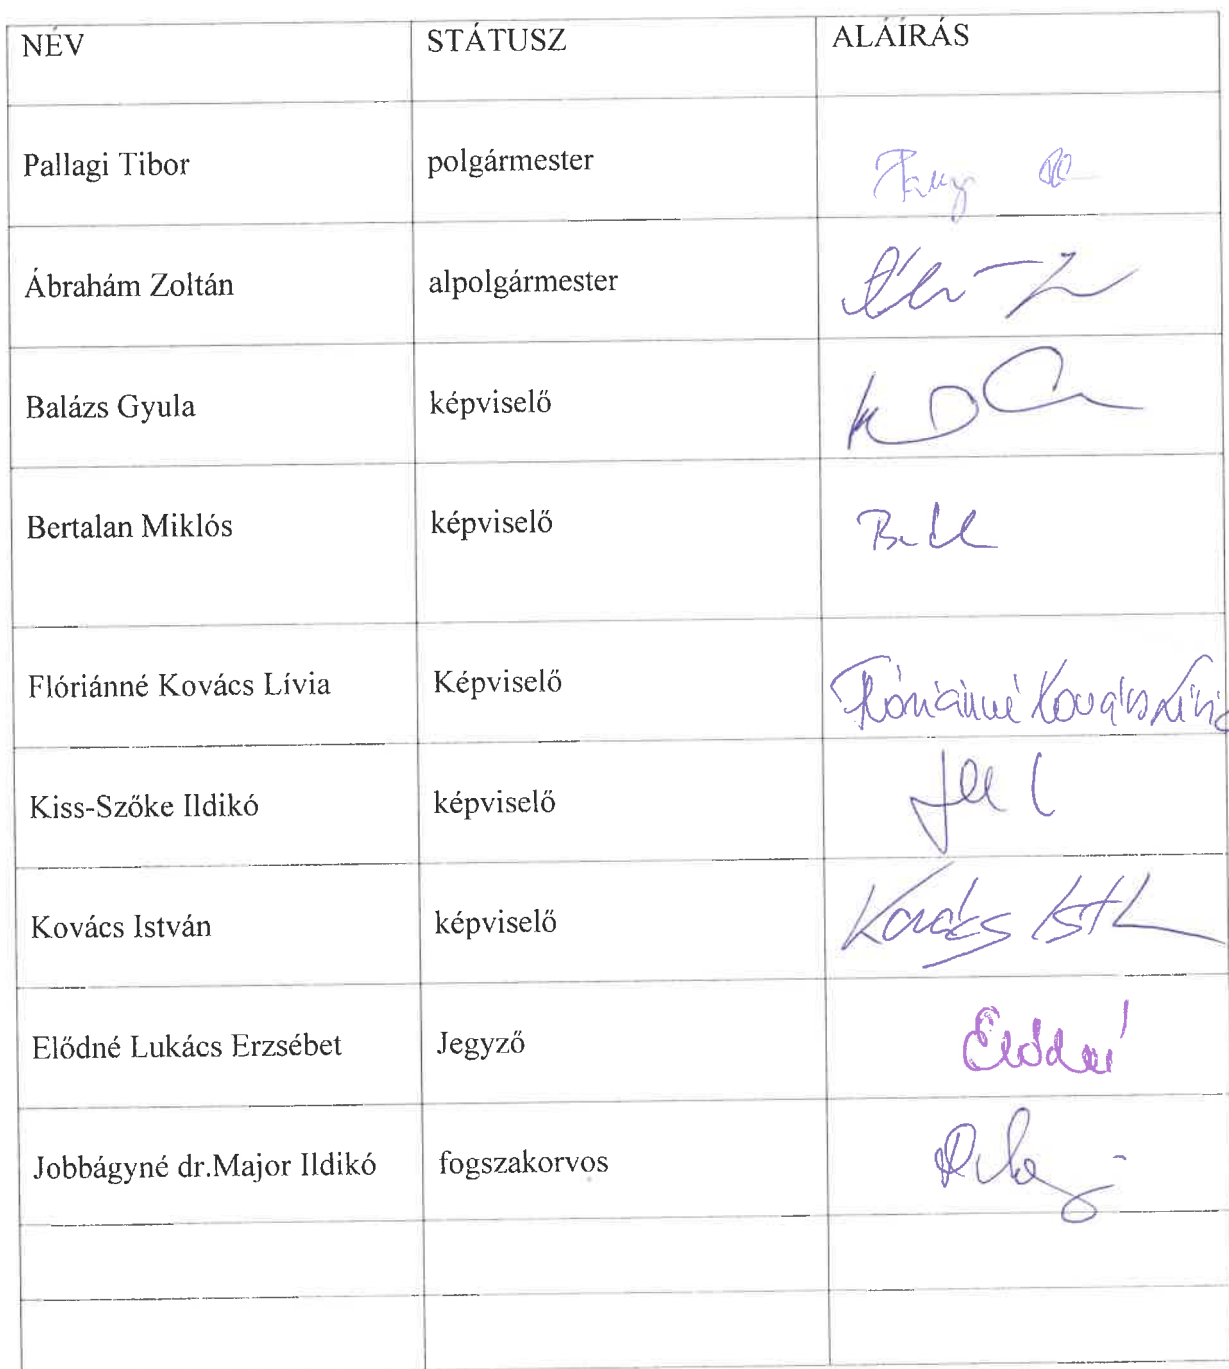 NÉV STÁTUSZ ALÁÍRÁS
Pallagi Tibor polgármester
Ábrahám Zoltán alpolgármester
Balázs Gyula képviselő
Bertalan Miklós képviselő
Flóriánné Kovács Lívia Képviselő Flóriánné Kovács Lívia
Kiss-Szőke Ildikó képviselő
Kovács István képviselő Kovács
Elődné Lukács Erzsébet Jegyző Elődné
Jobbágyné dr.Major Ildikó fogszakorvos